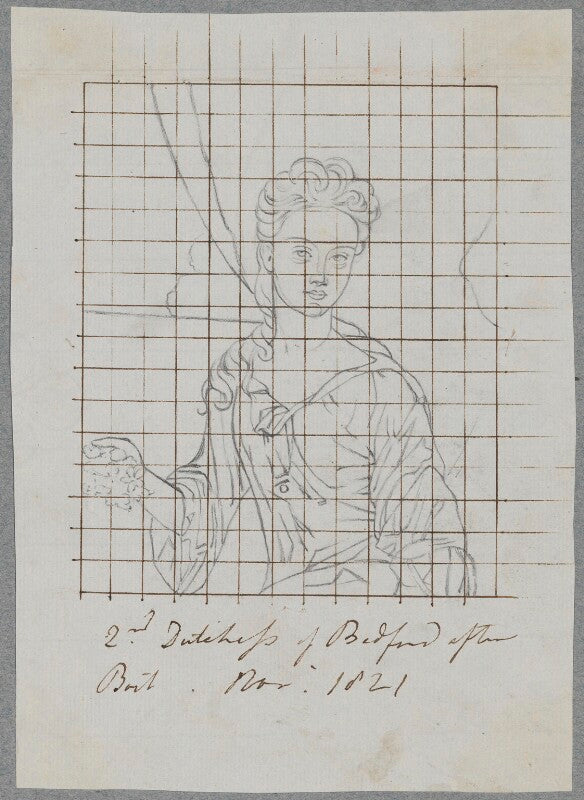 2nd Dutchess of Bedford after
Boit . Nov: 1821